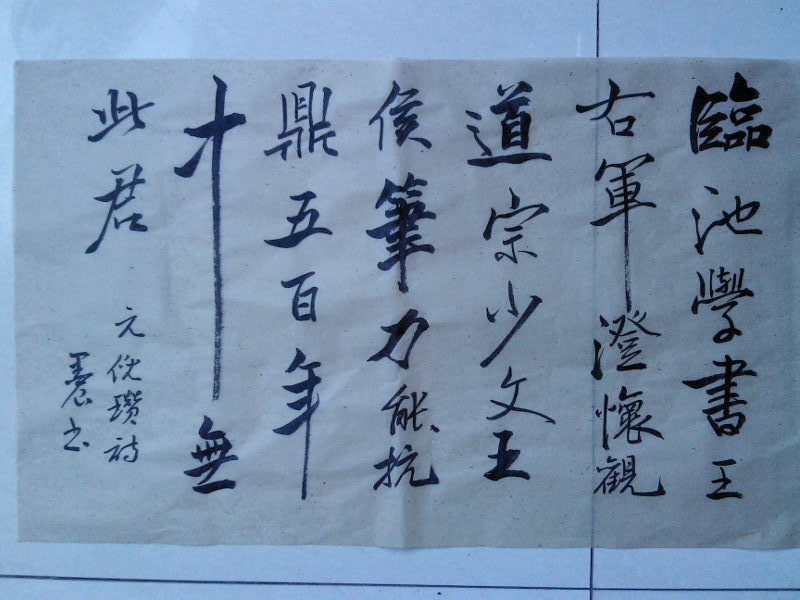 臨池學書王
右軍澄懷觀
道宗少文王
侯筆力能抗
鼎五百年
來無
此君
元倪瓚詩
书